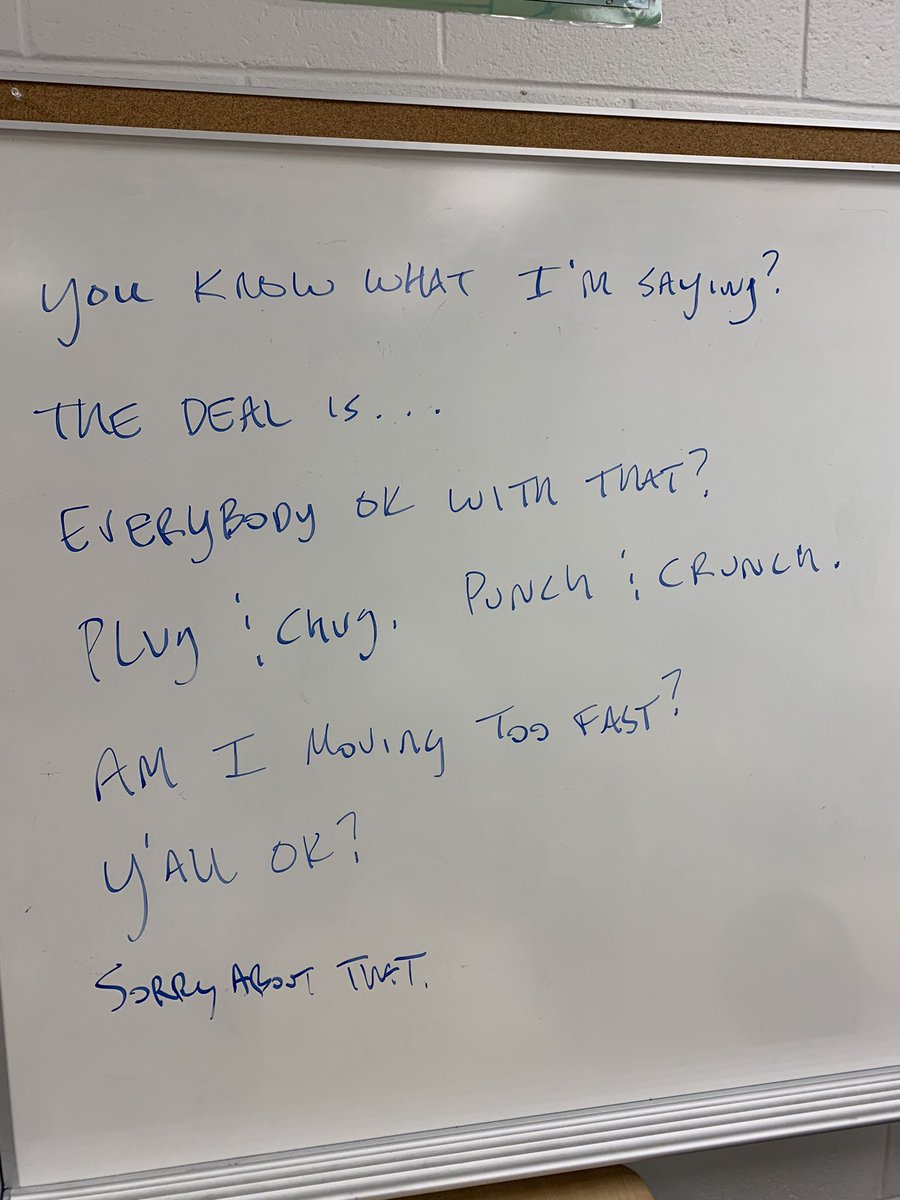 YOU KNOW WHAT I'M SAYING?
THE DEAL IS...
EVERYBODY OK WITH THAT?
PLUg & Chug. PUNCh & CRUNCh.
AM I MOVING TOO FAST?
Y'ALL OK?
SORRY ABOUT THAT.